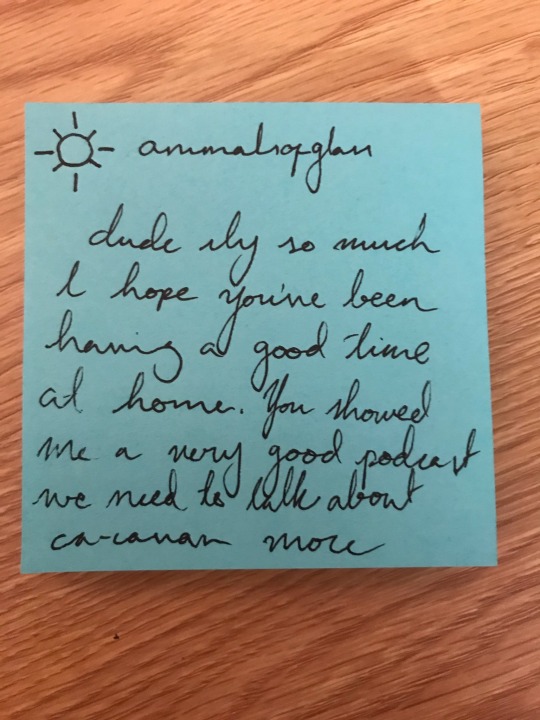 animalsofglass
dude ily so much
I hope you've been
having a good time
at home. You showed
me a very good podcast
we need to talk about
more